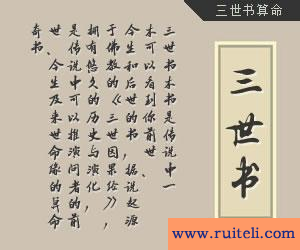 三世书算命
三世书
三世书本书是传说中一
本可以看到你前世、
今生和后世的书，据说起源
于佛教的《三世因果经》，
拥有悠久的历史与演化，
是传说中可以推演问者的前
世、今生及来世命缘的算命
奇书。
www.ruiteli.com